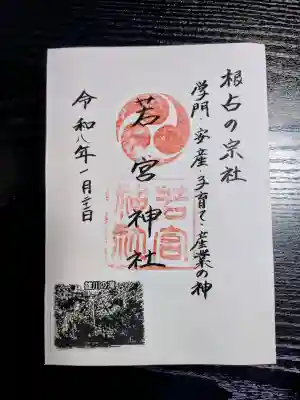 根占の宗社
学門・安産・子育て・産業の神
若宮神社
若宮
神社
令和八年一月三日
雄川の滝